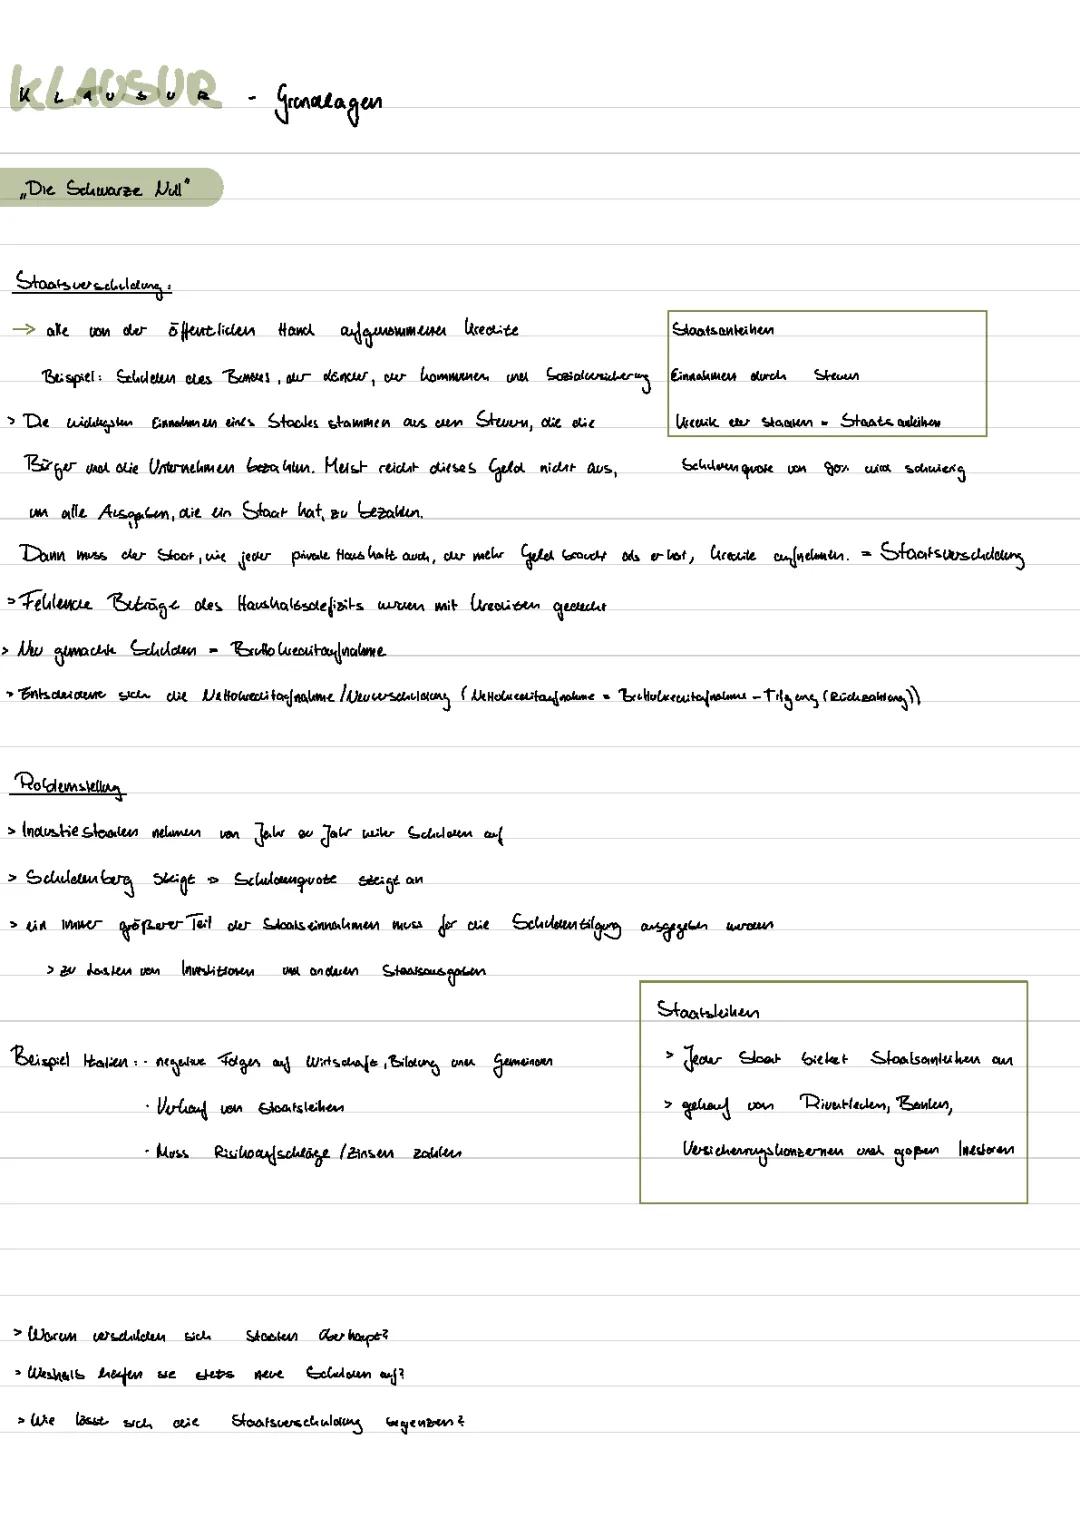 KLAUSUR - Grundlagen
„Die Schwarze Null"
Staatsverschuldung:
→ alle von der öffentlichen Hand aufgenommenen Kredite
Beispiel: Schulden des Bundes, der Länder, der Kommunen und Sozialversicherung
> Die wichtigsten Einnahmen eines Staates stammen aus den Steuern, die die
Bürger und die Unternehmen bezahlen. Meist reicht dieses Geld nicht aus,
um alle Ausgaben, die ein Staat hat, zu bezahlen.
Dann muss der Staat, wie jeder private Haushalt auch, der mehr Geld braucht als er hat, Kredite aufnehmen. = Staatsverschuldung
> Fehlende Beträge des Haushaltsdefizits werden mit Krediten gedeckt
> Neu gemachte Schulden = Bruttokreditaufnahme
> Entscheidend sich die Nettokreditaufnahme/Neuverschuldung (Nettokreditaufnahme = Bruttokreditaufnahme - Tilgung (Rückzahlung))
Staatsanleihen
Einnahmen durch Steuern
Kredit der Staaten = Staatsanleihen
Schuldenquote von 90% wird schwierig
Problemstellung
> Industiestaaten nehmen von Jahr zu Jahr weiter Schulden auf
> Schuldenberg steigt → Schuldenquote steigt an
> ein immer größerer Teil der Staatseinnahmen muss für die Schuldentilgung ausgegeben werden
> zu Lasten von Investitionen und anderen Staatsausgaben
Beispiel Italien: · negative Folgen auf Wirtschaft, Bildung und Gemeinden
· Verkauf von Staatsleihen
· Muss Risikoaufschläge/Zinsen zahlen
Staatsleihen
> Jeder Staat bietet Staatsanleihen an
> gekauf von Privatleuten, Banken,
Versicherungskonzernen und großen Investoren
> Warum verschulden sich Staaten überhaupt?
> Weshalb häufen sie stets neue Schulden auf?
> Wie lässt sich die Staatsverschuldung begrenzen?